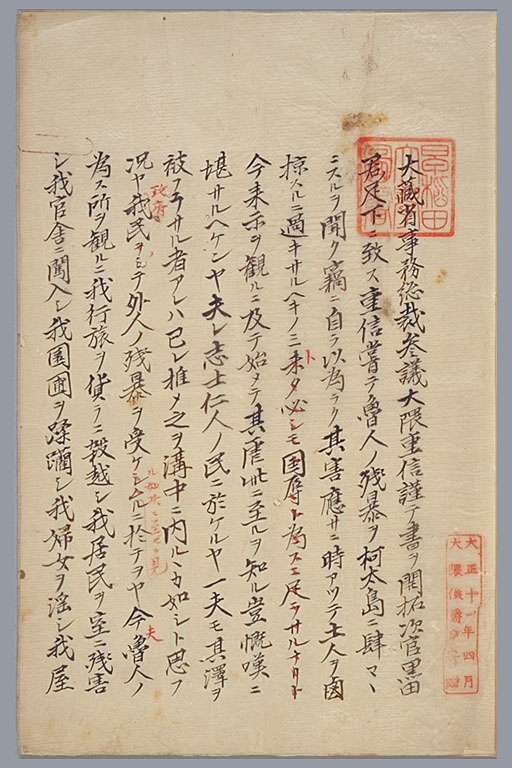 大藏省事務総裁参議大隈重信謹テ書ヲ開拓次官黒田
君足下ニ致ス重信嘗テ魯人ノ残暴ヲ柯太島ニ肆マヽ
ニスルヲ聞ク竊ニ自ラ以為ラク其害應サニ時アツテ土人ヲ鹵
掠スルニ過キサルヘキノミト未タ必シモ国辱ト為スニ足ラサルナリト
今来示ヲ観ルニ及テ始メテ其虐此ニ至ルヲ知ル豈慨嘆ニ
堪サルヘケンヤ夫レ志士仁人ノ民ニ於ケルヤ一夫モ其澤ヲ
被フラサル者アレハ己レ推メ之ヲ溝中ニ内ルヽカ如シト思フ
政府
況ヤ我民ヲシテ外人ノ残暴ヲ受ケシムルニ於テヲヤ今魯人ノ
夫
為ス所ヲ観ルニ我行旅ヲ貨ラニ殺越シ我居民ヲ室ニ残害
シ我官舎ニ闖入シ我園囿ヲ蹂躙シ我婦女ヲ淫シ我屋
大正十一年四月
大隈侯爵家寄贈